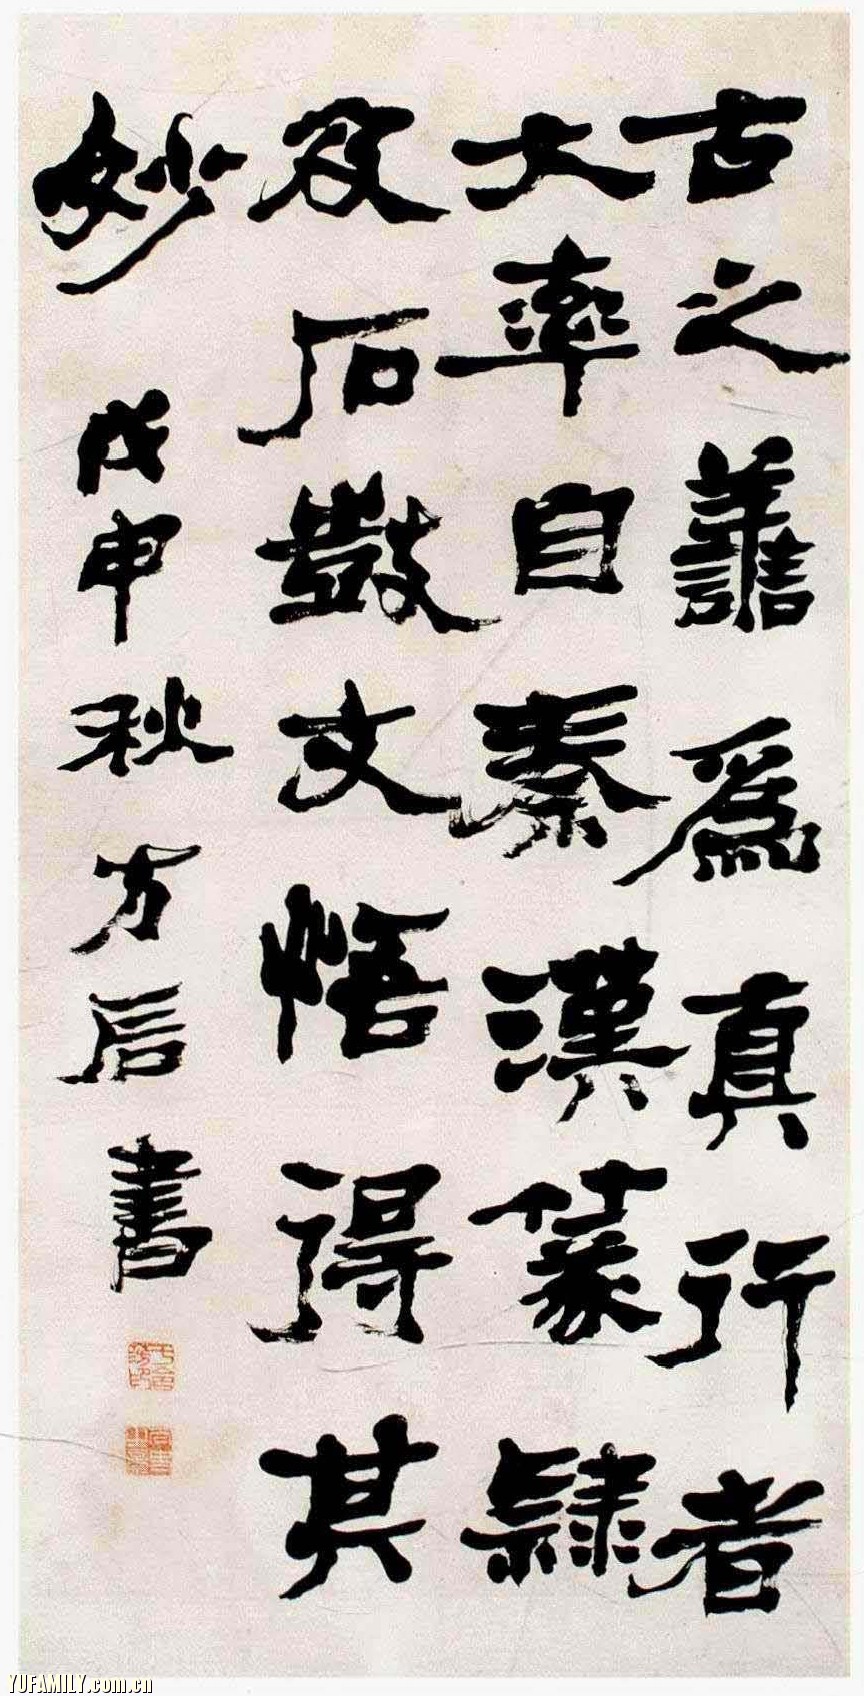 古之譱爲真行者
大率自秦漢篆隸
及石鼓文悟得其
妙 戊申秋方后書
YUFAMILY.com.cn